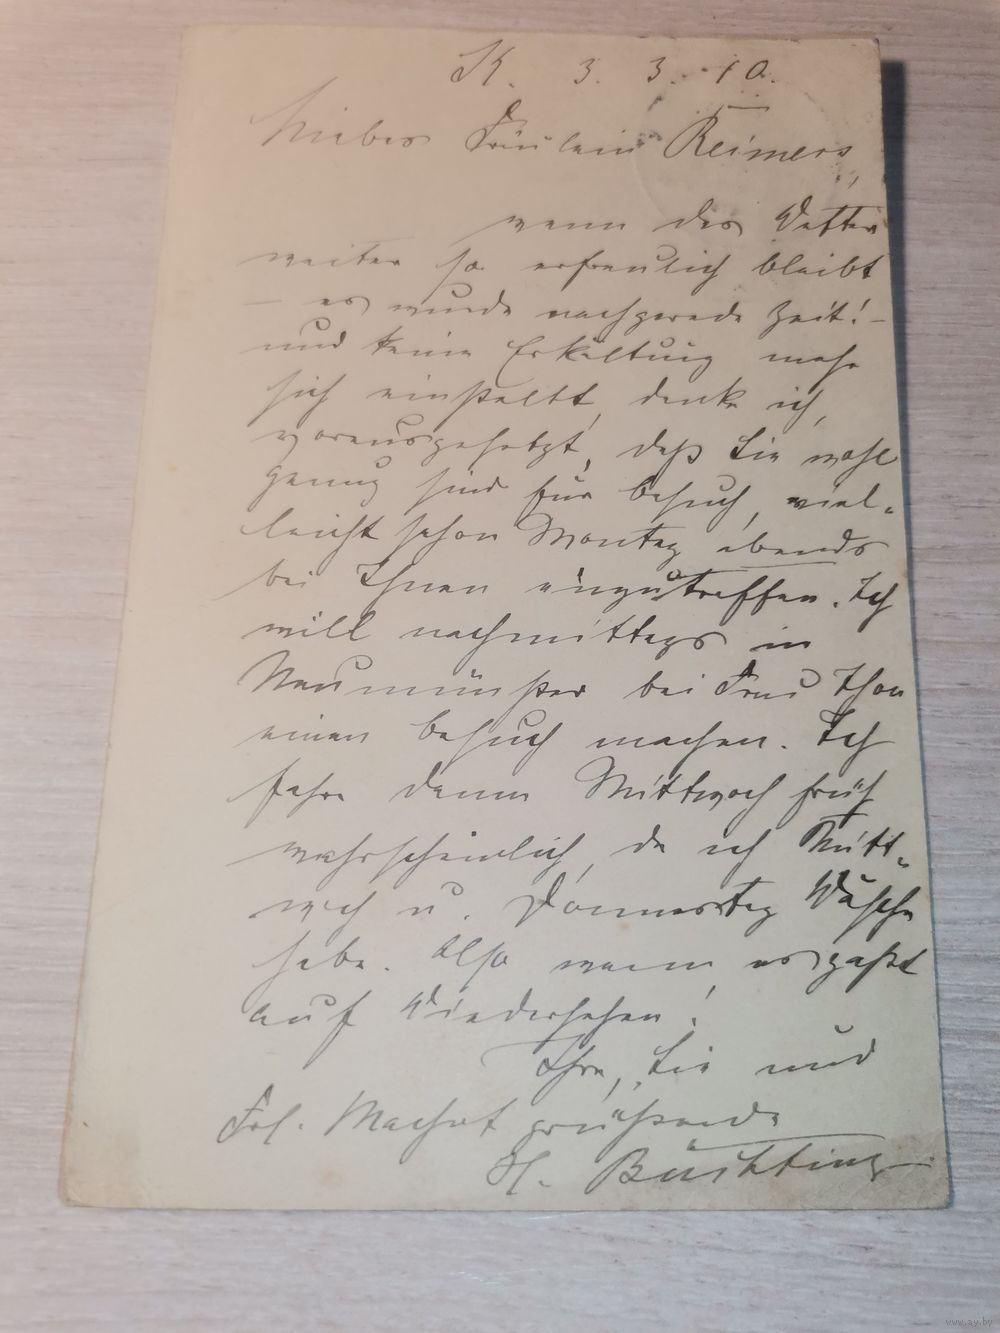 K. 3. 3. 10.
Liebes Fräulein Reimers,
wenn das Wetter
weiter so erfreulich bleibt
— es wurde nachgerade Zeit! —
und keine Erkältung mehr
sich einstellt, denke ich,
vorausgesetzt, daß Sie wohl
genug sind für Besuch, viel-
leicht schon Montag abends
bei Ihnen einzutreffen. Ich
will nachmittags in
Neumünster bei Frau Thon
einen Besuch machen. Ich
fahre dann Mittwoch früh
wahrscheinlich, da ich Mitt-
woch u. Donnerstag Wäsche
habe. Also wenn es paßt
auf Wiedersehen!
Ihre, Sie und
Frl. Machat grüßende
H. Büchting.
www.ay.by